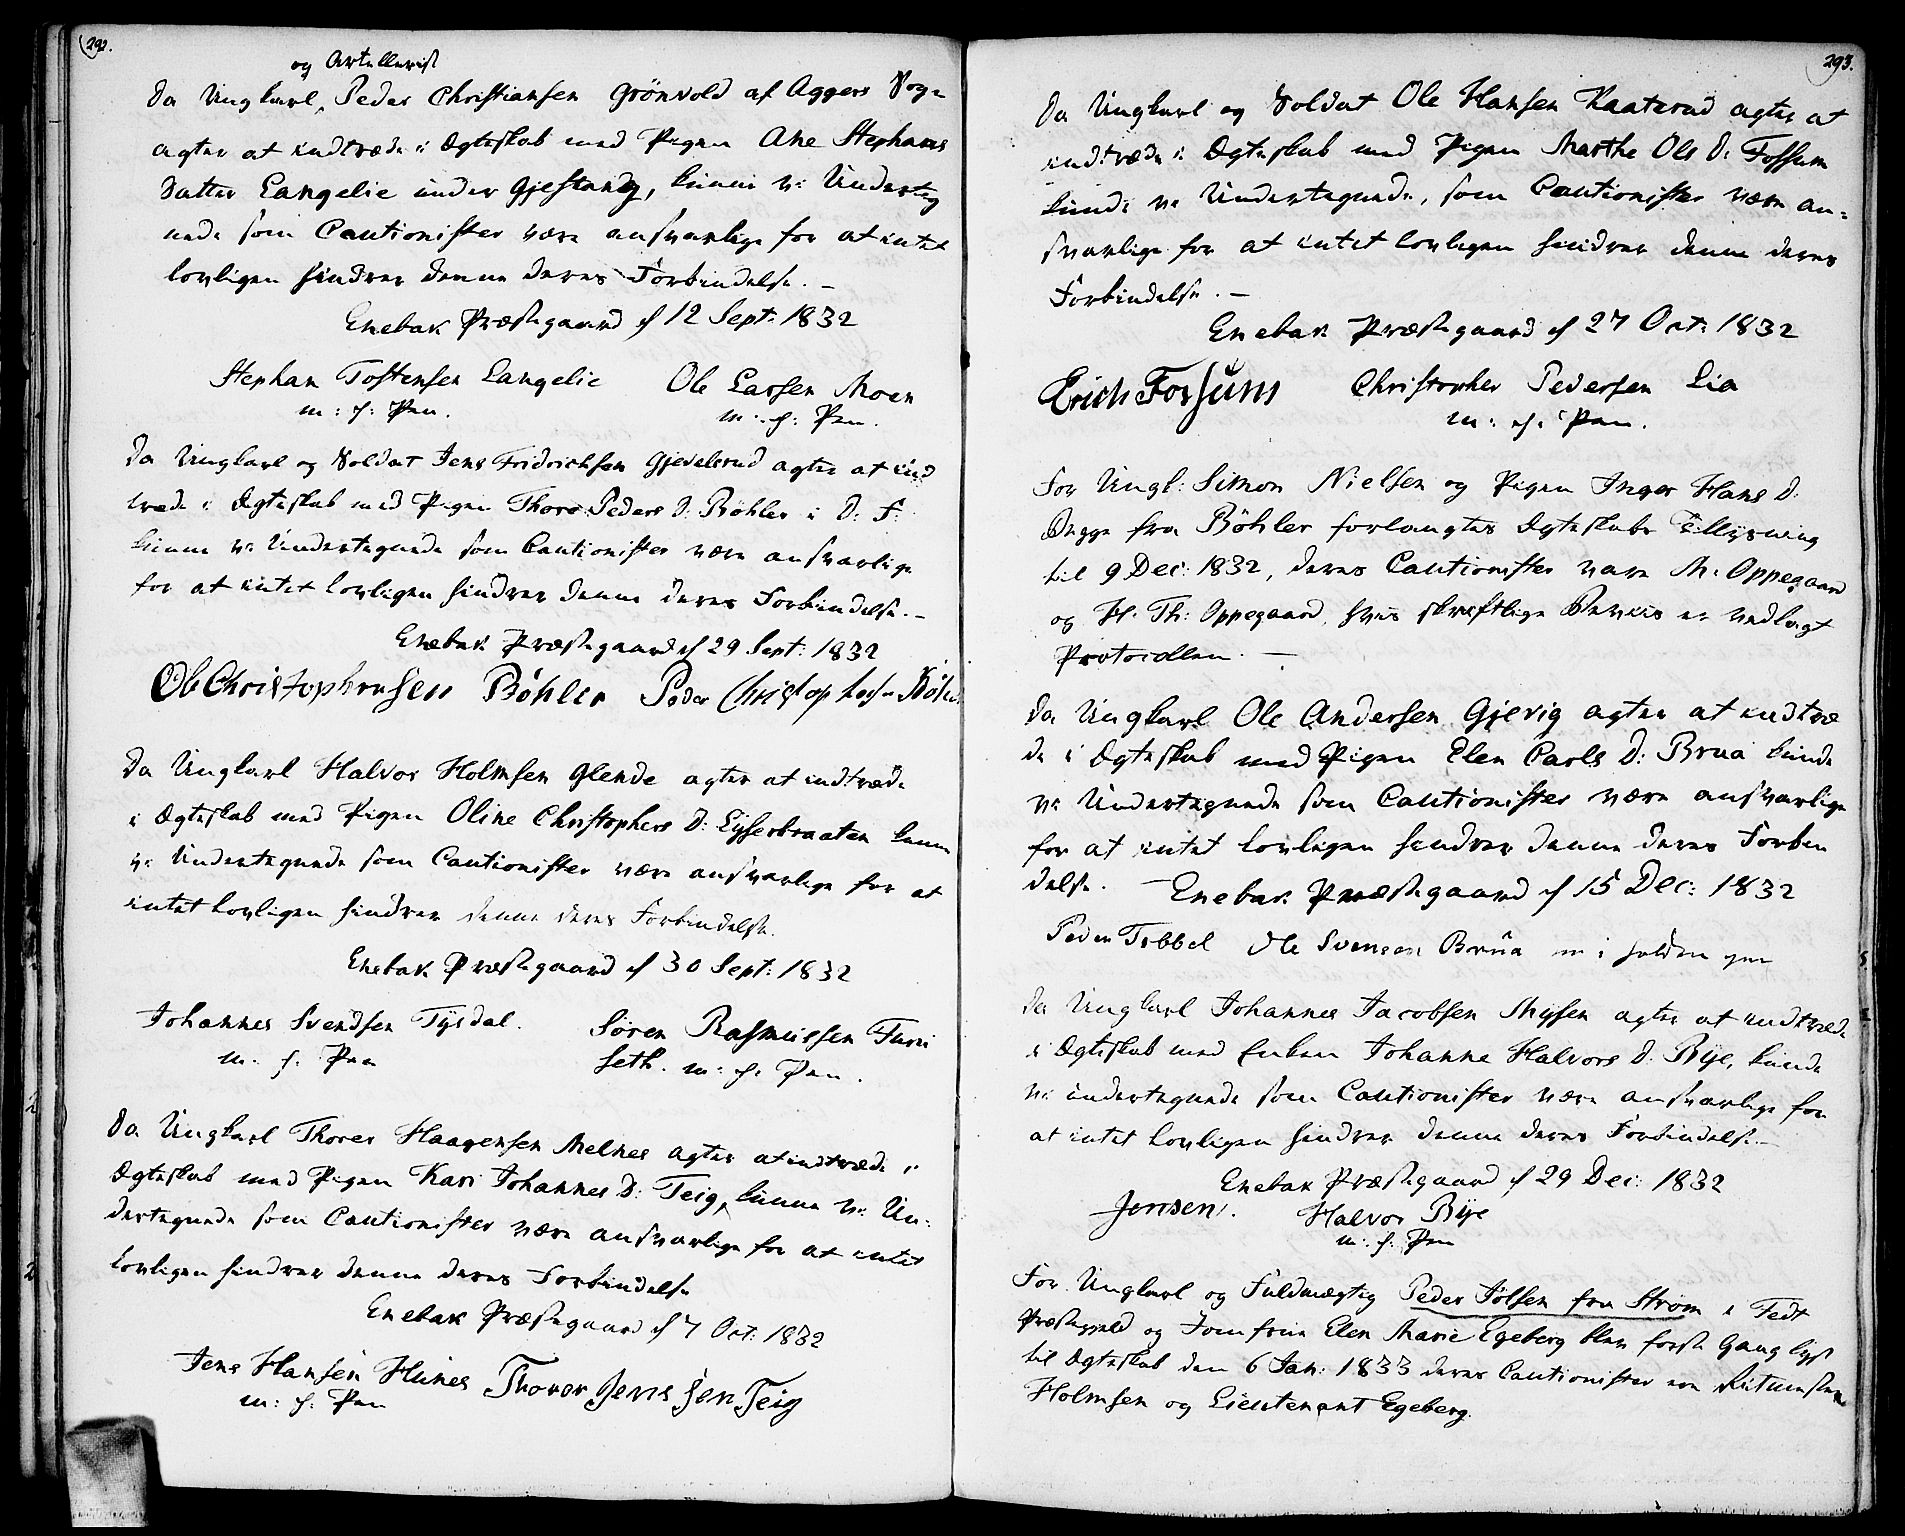 292.
og Artellerist
Da Ungkarl, Peder Christiansen Grönvold af Aggers Sogn
agter at indtræde i Ægteskab med Pigen Ane Stephans
Datter Langelie under Gjestang, kunne vi Underteg
nede som Cautionister være ansvarlige for at intet
lovligen hindrer denne deres Forbindelse. –
Enebak Præstegaard d 12 Sept: 1832
Stephan Tostensen Langelie Ole Larsen Moen
m: f: Pen. m: f: Pen.
Da Ungkarl og Soldat Jens Fridrichsen Gjevelsrud agter at ind
træde i Ægteskab med Pigen Thore Peders D: Böhler i D: F:
kunne vi Undertegnede som Cautionister være ansvarlige
for at intet lovligen hindrer denne deres Forbindelse. –
Enebak Præstegaard d 29 Sept: 1832
Ole Christophersen Böhler Peder Christophersen Böhler
Da Ungkarl Halvor Holmsen Glende agter at indtræde
i Ægteskab med Pigen Oline Christophers D: Lysserbraaten kunne
vi Undertegnede som Cautionister være ansvarlige for at
intet lovligen hindrer denne deres Forbindelse.
Enebak Præstegaard d 30 Sept: 1832
Johannes Svendsen Tysdal. Sören Rasmussen Furu
m. f. Pen seth. m: f: Pen.
Da Ungkarl Thorer Haagensen Melnes agter at indtræde i
Ægteskab med Pigen Kari Johannes D: Teig, kunne vi Un:
dertegnede som Cautionister være ansvarlige for at intet
lovligen hindrer denne deres Forbindelse
Enebak Præstegaard d 7 Oct: 1832
Jens Hansen Thorer Jens sen Teig
m: f: Pen
293.
Da Ungkarl og Soldat Ole Hansen Kaaterud agter at
indtræde i Ægteskab med Pigen Marthe Ols D: Fossum
kunde vi Undertegnede, som Cautionister være an:
svarlige for at intet lovligen hindrer denne deres
Forbindelse. –
Enebak Præstegaard d 27 Oct: 1832
Erich Forsum Christopher Pedersen Lia
m: f: Pen.
For Ungk: Simon Nielsen og Pigen Inger Hans D:
Begge fra Böhler forlangtes Ægteskabs Tillysning
til 9 Dec: 1832, deres Cautionister vare M: Oppegaard
og H. Th: Oppegaard, hvis skriftlige Beviis er vedlagt
Protocollen. –
Da Ungkarl Ole Andersen Gjevig agter at indtræ
de i Ægteskab med Pigen Elen Carls D: Brua kunde
vi Undertegnede som Cautionister være ansvarlige
for at intet lovligen hindrer denne deres Forbin
delse. – Enebak Præstegaard d 15 Dec: 1832
Peder Tobbel Ole Svensen Brua m i holden pen
Da Ungkarl Johannes Jacobsen Mysen agter at indtræde
i Ægteskab med Enken Johanne Halvors D: Rye, kunde
vi undertegnede som Cautionister være ansvarlige for
at intet lovligen hindrer denne deres Forbindelse. –
Enebak Præstegaard d 29 Dec: 1832
Jensen. Halvor Rye
m: f: Pen
For Ungkarl og Fuldmægtig Peder Jölsen fra Ström i Fedt
Præstegjeld og Jomfrue Elen Marie Egeberg blev første Gang lyst
til Ægteskab den 6 Jan: 1833 deres Cautionister ere Ritmester
Holmsen og Lieutenant Egeberg.